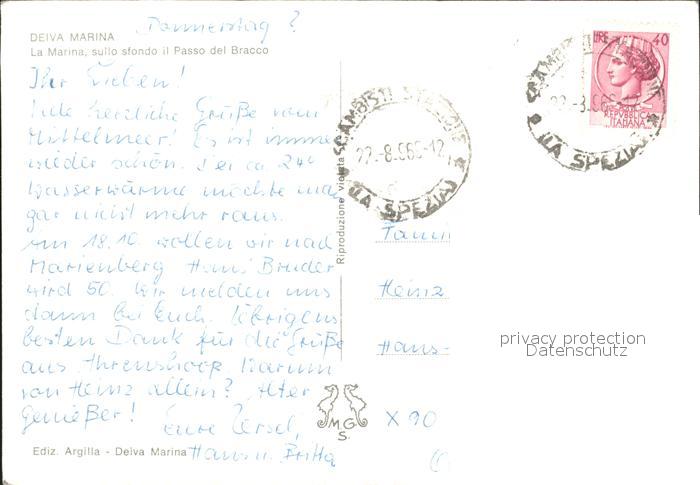 Donnerstag ?
DEIVA MARINA
La Marina, sullo sfondo il Passo del Bracco
Ihr Lieben!
Viele herzliche Grüße vom
Mittelmeer! Es ist immer
wieder schön. Bei ca 24°
Wasserwärme möchte man
gar nicht mehr raus.
Am 18.10. wollen wir nach
Marienberg Hans' Bruder
wird 50. Wir melden uns
dann bei Euch. Übrigens
besten Dank für die Grüße
aus Ahrenshoop. Warum
von Heinz allein? Alter
Genießer!
Eure
Hans u. Britta
Ediz. Argilla - Deiva Marina
Riproduzione vietata
M G S.
SCAMBISTI STAZIONE
22.-8.
(LA SPEZIA)
LIRE 40
REPVBBLICA
ITALIANA
22.-8.
(LA SPEZIA)
Famil
Heinz
Hans-
X 90
privacy protection
Datenschutz